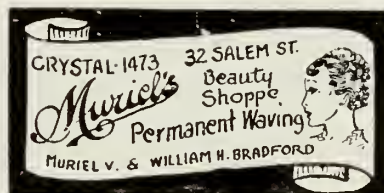 CRYSTAL-1473 32 SALEM ST.
Muriel's Beauty
Shoppe
Permanent Waving
MURIEL V. & WILLIAM H. BRADFORD